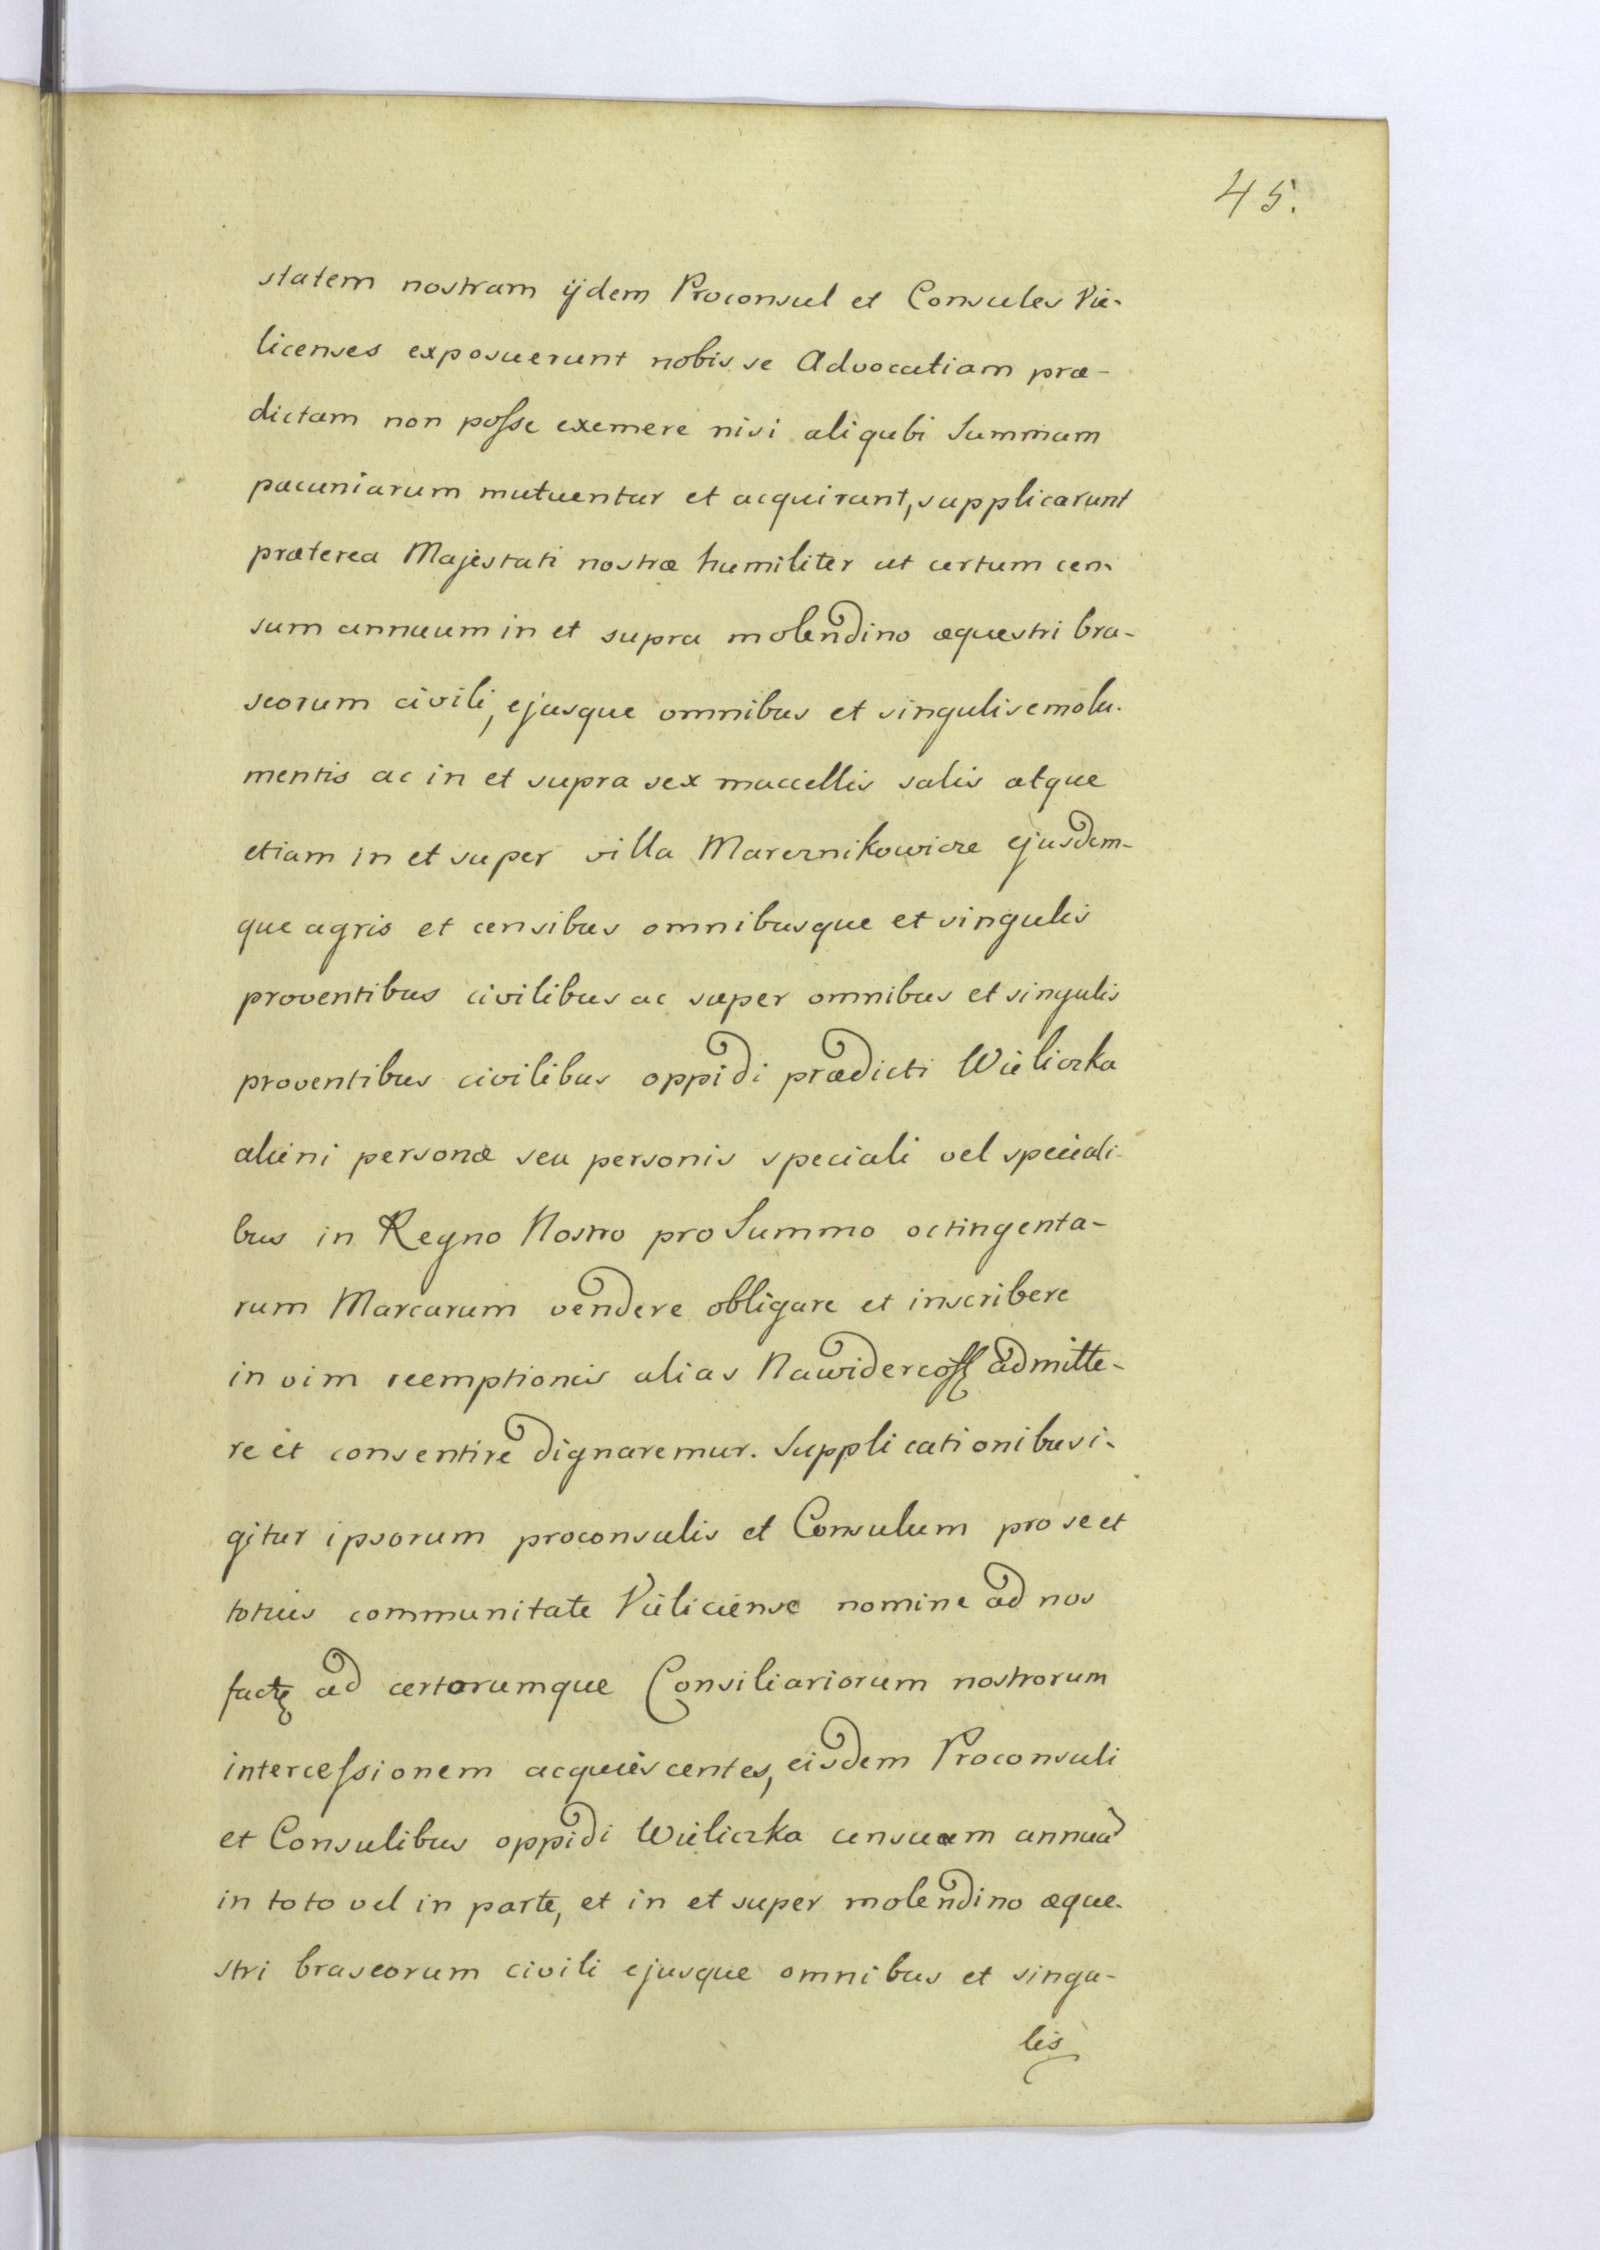 45.
statem nostram ijdem Proconsul et Consules Vie-
licenses exposuerunt nobis se Advocatiam præ-
dictam non posse exemere nisi aliqubi Summam
pæcuniarum mutuentur et acquirant, supplicarunt
præterea Majestati nostræ humiliter ut certum cen-
sum annuum in et supra molendino æquestri bra-
seorum civili, ejusque omnibus et singulis emolu-
mentis ac in et supra sex maccellis salis atque
etiam in et super villa Marcznikowicze ejusdem-
que agris et censibus omnibusque et singulis
proventibus civilibus ac super omnibus et singulis
proventibus civilibus oppidi prædicti Wieliczka
alieni personæ seu personis speciali vel speciali-
bus in Regno Nostro pro Summo octingenta-
rum Marcarum vendere obligare et inscribere
in vim reemptionis alias Nawidercoff admitte-
re et consentire dignaremur. Supplicationibus i-
gitur ipsorum proconsulis et Consulum pro se et
totius communitate Vieliciense nomine ad nos
factę ad certorumque Consiliariorum nostrorum
intercessionem acquiescentes, eisdem Proconsuli
et Consulibus oppidi Wieliczka censuum annuū
in toto vel in parte, et in et super molendino æque-
stri braseorum civili ejusque omnibus et singu-
lis